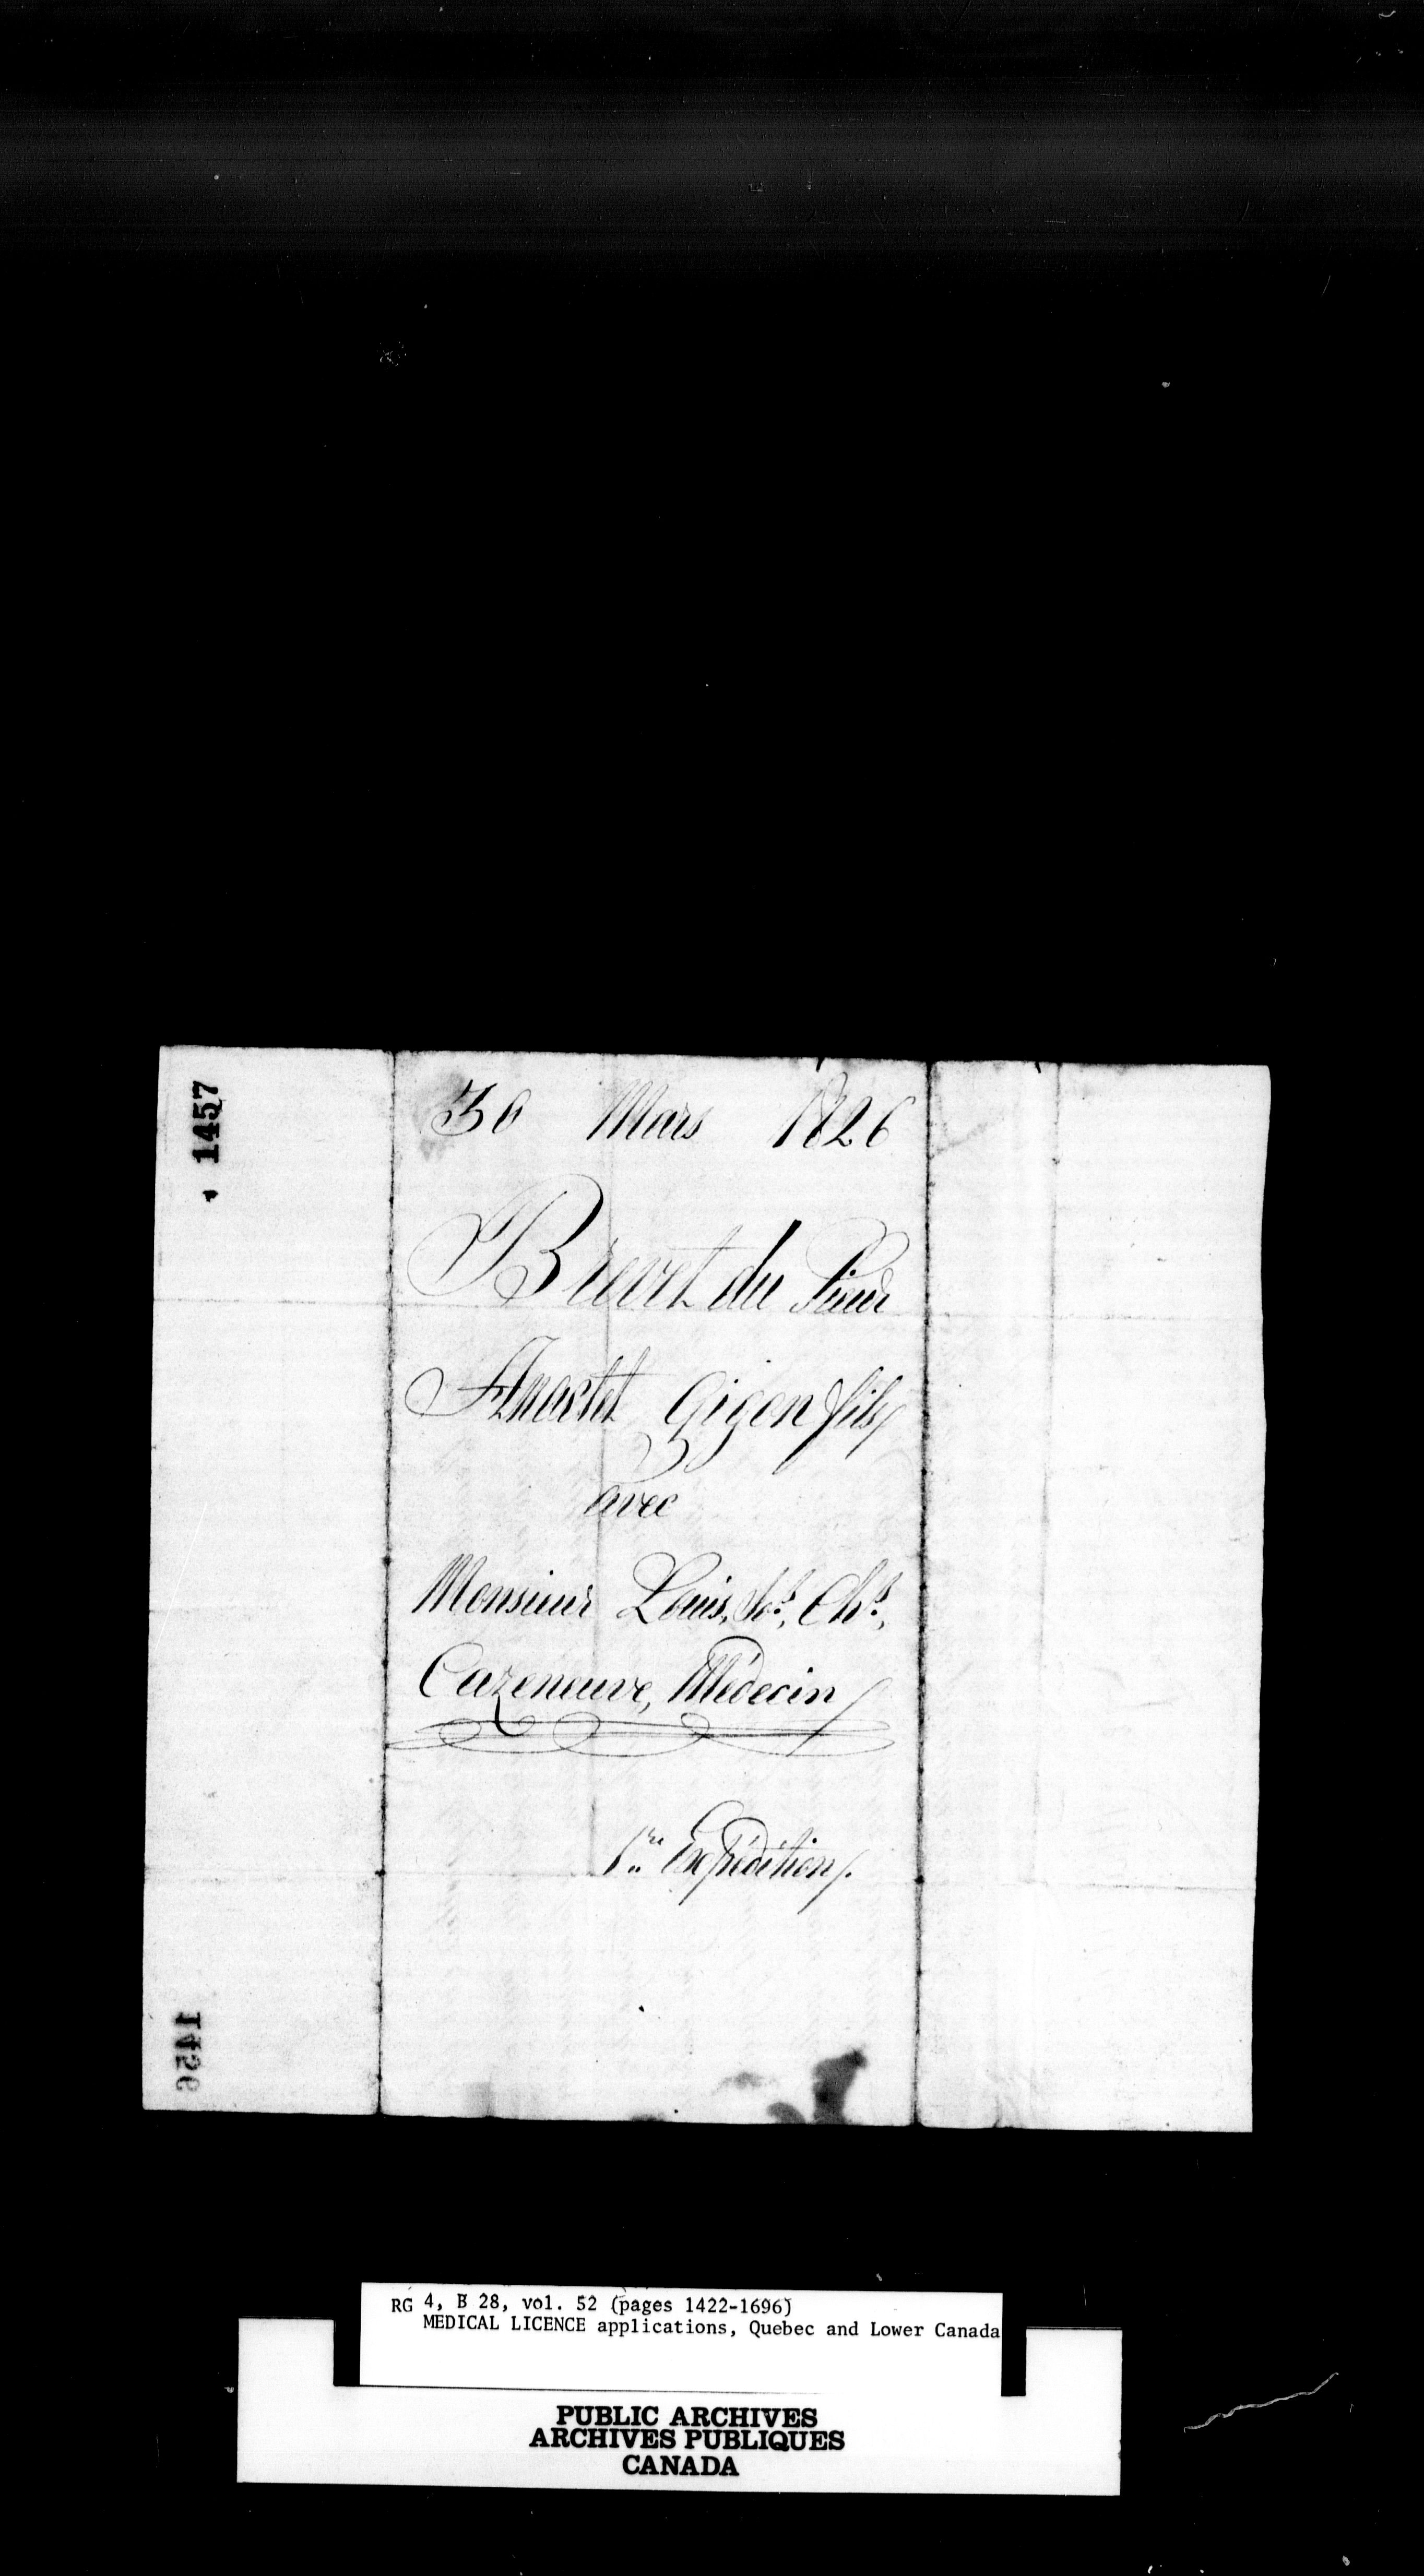 1457
30 Mars 1826
Brevet du Sieur
Anactet Gigon fils
avec
Monsieur Louis, Js, Chs,
Cazeneuve, Médecin
1re Expédition.
1456
RG 4, B 28, vol. 52 (pages 1422-1696)
MEDICAL LICENCE applications, Quebec and Lower Canada
PUBLIC ARCHIVES
ARCHIVES PUBLIQUES
CANADA